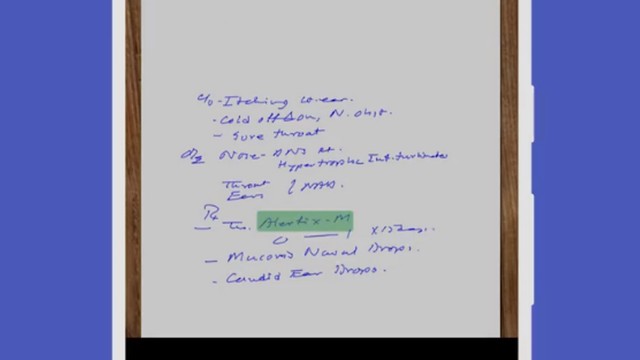 c/o - Itching in ear.
- Cold off & on, N. obst.
- Sore throat
O/E Nose - DNS Lt.
Hypertrophic Inf. turbinate
Throat } NAD.
Ears
Rx
- Tab. Alertix-M
x 15 days.
- Nasal Drops.
- Candid Ear Drops.